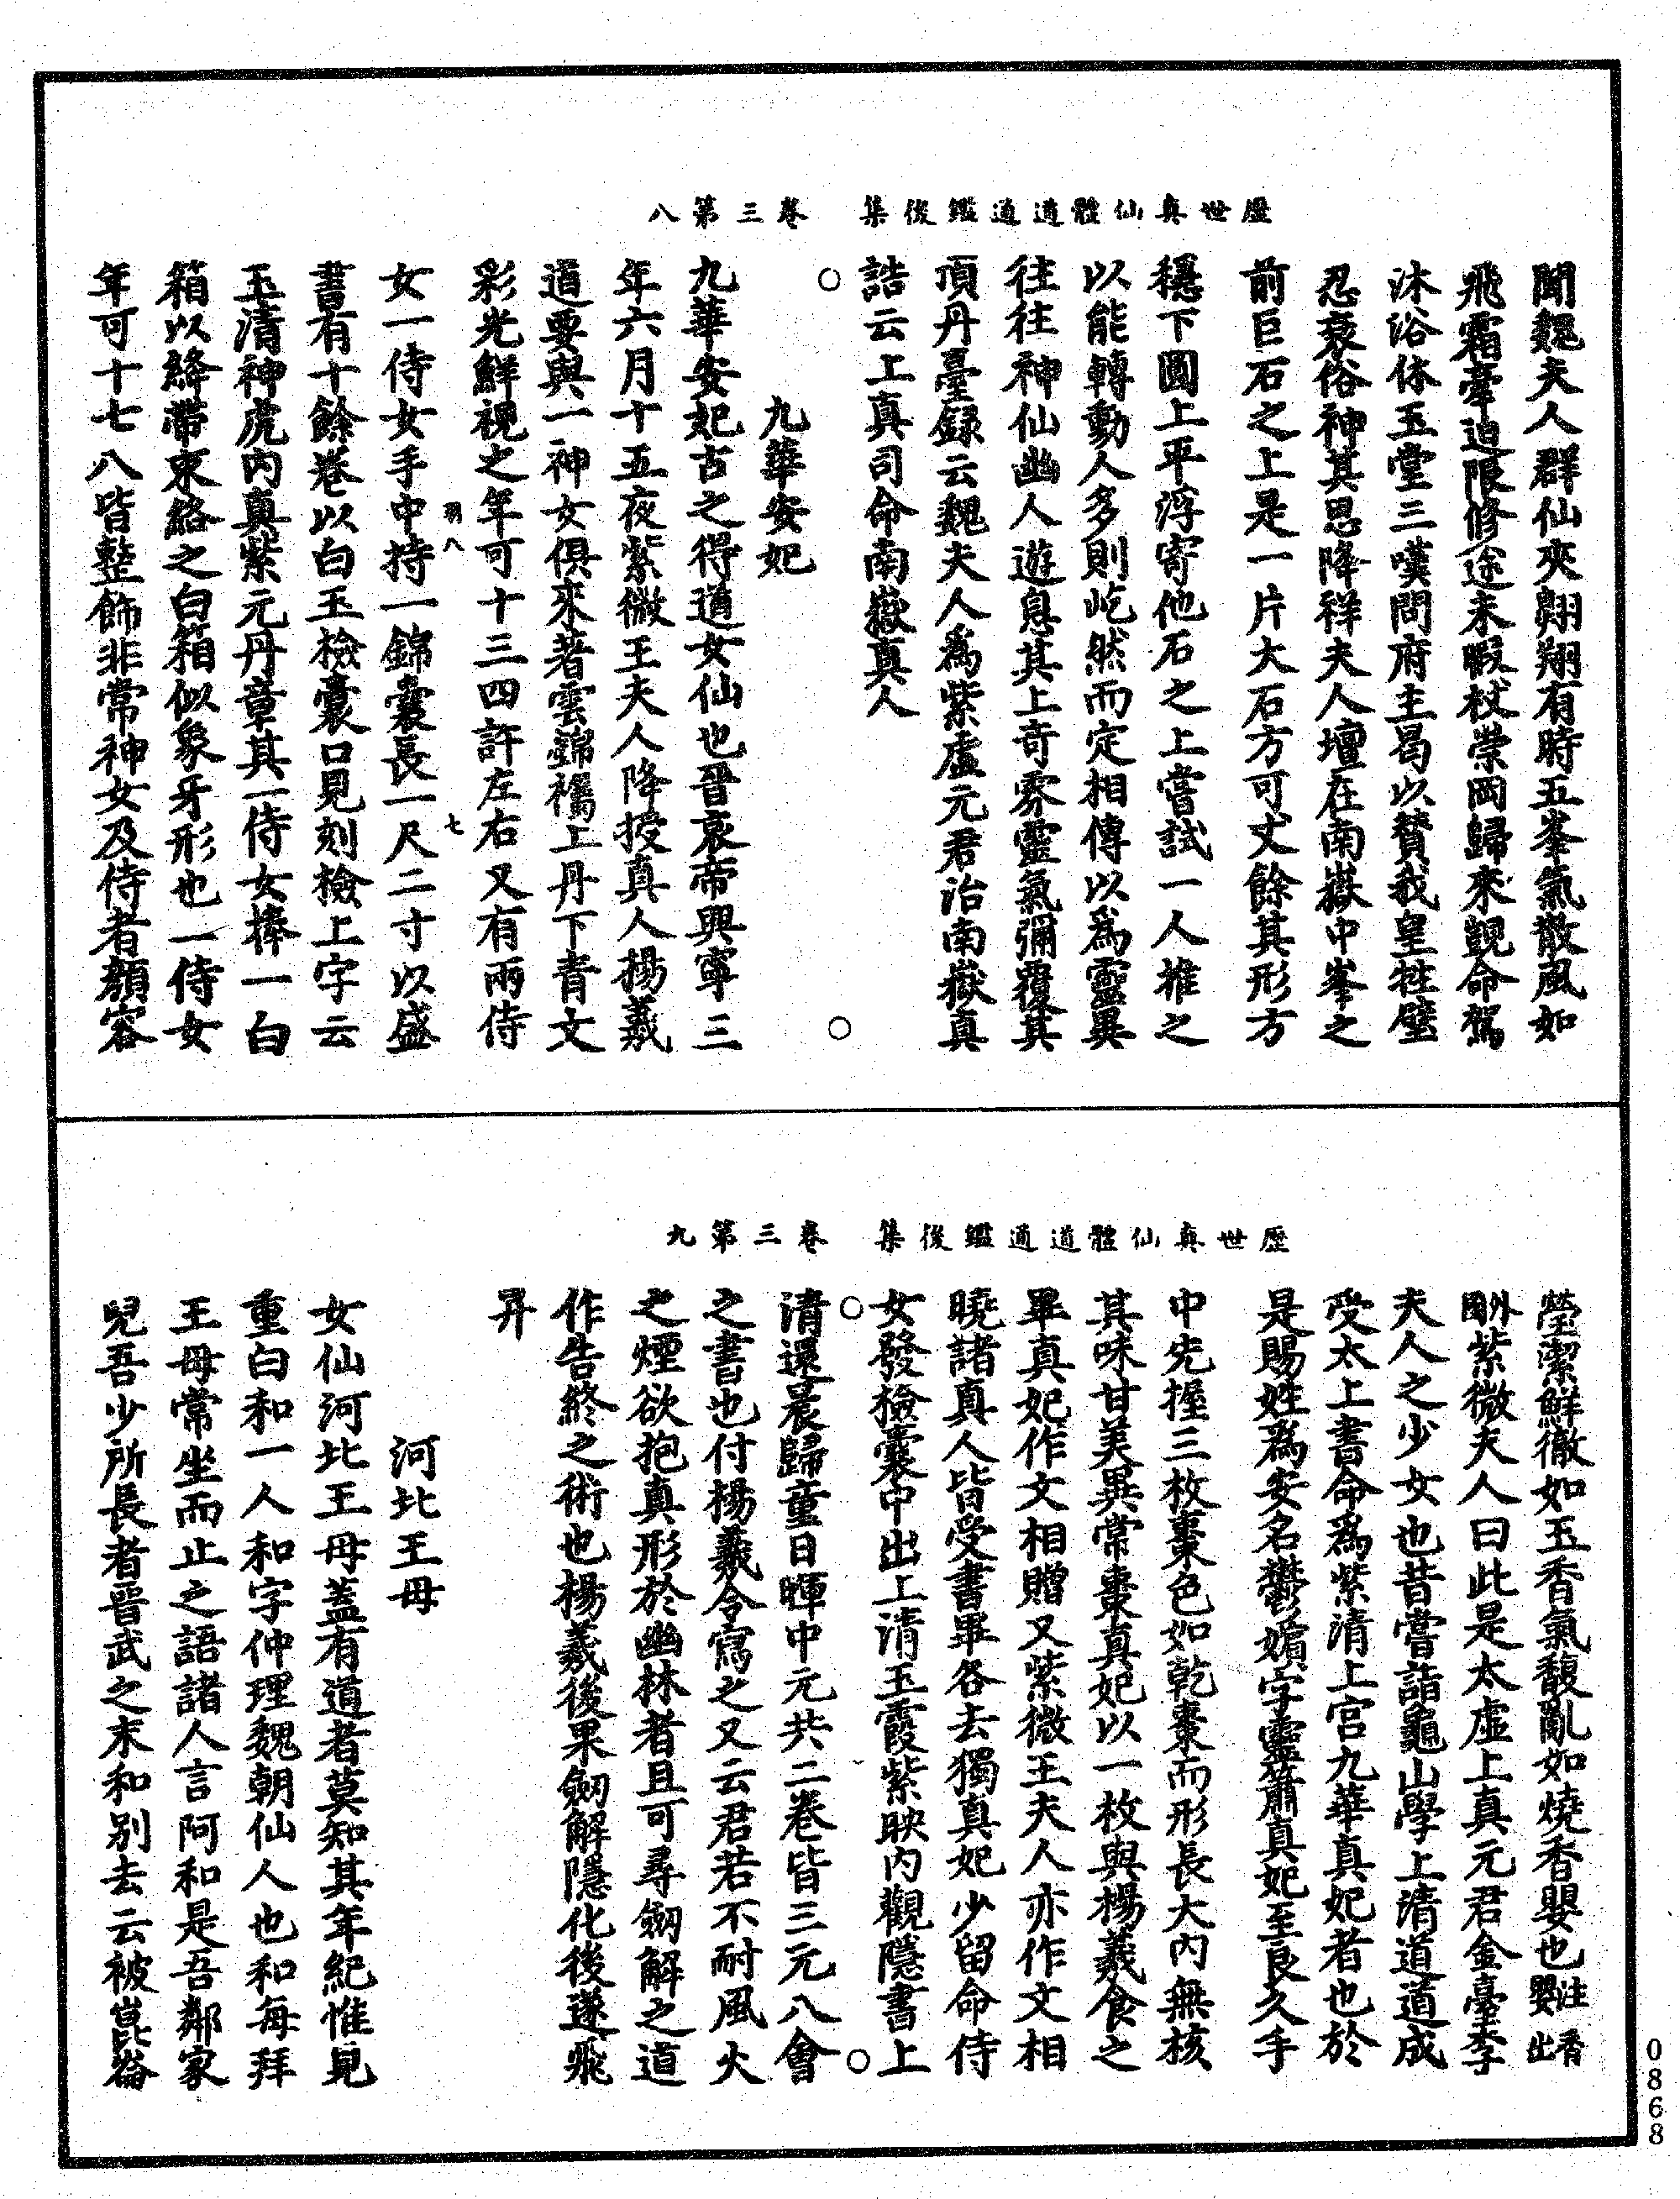 歷世真仙體道通鑑後集　卷三第八
聞魏夫人群仙夾翱翔有時五峯氣散風如
飛霜牽迫限修途未暇杖崇岡歸來覬命駕
沐浴休玉堂三嘆問府主曷以贊我皇牲璧
忍褻俗神其思降祥夫人壇在南嶽中峯之
前巨石之上是一片大石方可丈餘其形方
穩下圓上平浮寄他石之上嘗試一人推之
以能轉動人多則屹然而定相傳以爲靈異
往往神仙幽人遊息其上奇雰靈氣彌覆其
頂丹臺録云魏夫人爲紫虛元君治南嶽真
誥云上真司命南嶽真人
九華安妃
九華安妃古之得道女仙也晉哀帝興寧三
年六月十五夜紫微王夫人降授真人揚羲
道要與一神女俱來著雲錦襡上丹下青文
彩光鮮視之年可十三四許左右又有兩侍
羽八　七
女一侍女手中持一錦囊長一尺二寸以盛
書有十餘卷以白玉檢囊口見刻檢上字云
玉清神虎內真紫元丹章其一侍女捧一白
箱以絳帶束絡之白箱似象牙形也一侍女
年可十七八皆整飾非常神女及侍者顏容
歷世真仙體道通鑑後集　卷三第九
瑩潔鮮徹如玉香氣馥亂如燒香嬰也嬰香出
外國紫微夫人曰此是太虛上真元君金臺李
夫人之少女也昔嘗詣龜山學上清道道成
受太上書命爲紫清上宮九華真妃者也於
是賜姓爲安名鬱嬪字靈簫真妃至良久手
中先握三枚棗色如乾棗而形長大內無核
其味甘美異常棗真妃以一枚與楊羲食之
畢真妃作文相贈又紫微王夫人亦作文相
曉諸真人皆受書畢各去獨真妃少留命侍
女發檢囊中出上清玉霞紫映內觀隱書上
清還晨歸童日暉中元共二卷皆三元八會
之書也付楊羲令寫之又云君若不耐風火
之煙欲抱真形於幽林者且可尋劒解之道
作告終之術也楊羲後果劒解隱化後遂飛
昇
河北王母
女仙河北王母蓋有道者莫知其年紀惟見
重白和一人和字仲理魏朝仙人也和每拜
王母常坐而止之語諸人言阿和是吾鄰家
兒吾少所長者晉武之末和別去云被崑崙
0868